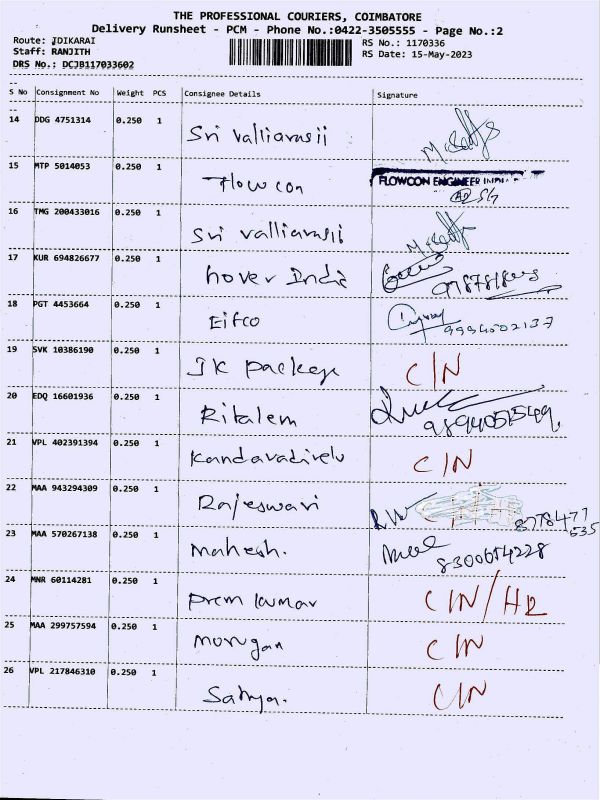 THE PROFESSIONAL COURIERS, COIMBATORE
Delivery Runsheet - PCM - Phone No.:0422-3505555 - Page No.:2
Route: IDIKARAI RS No.: 1170336
Staff: RANJITH RS Date: 15-May-2023
DRS No.: DCJB117033602
S No Consignment No Weight PCS Consignee Details Signature
14 DDG 4751314 0.250 1 Sri Valliarasii
15 MTP 5014053 0.250 1 Flowcon FLOWCON ENGINEER INDIA
16 TMG 200433016 0.250 1 Sri valliarasii
17 KUR 694826677 0.250 1 hover India
18 PGT 4453664 0.250 1 Eifco 9994002137
19 SVK 10386190 0.250 1 JK package C/N
20 EDQ 16601936 0.250 1 Ritalem
21 VPL 402391394 0.250 1 Kandavadivelu C/N
22 MAA 943294309 0.250 1 Rajeswari 8778477
535
23 MAA 570267138 0.250 1 Mahesh. 8300654228
24 MNR 60114281 0.250 1 Prem kumar C/N/H2
25 MAA 299757594 0.250 1 Morugan C/N
26 VPL 217846310 0.250 1 Sathya. C/N